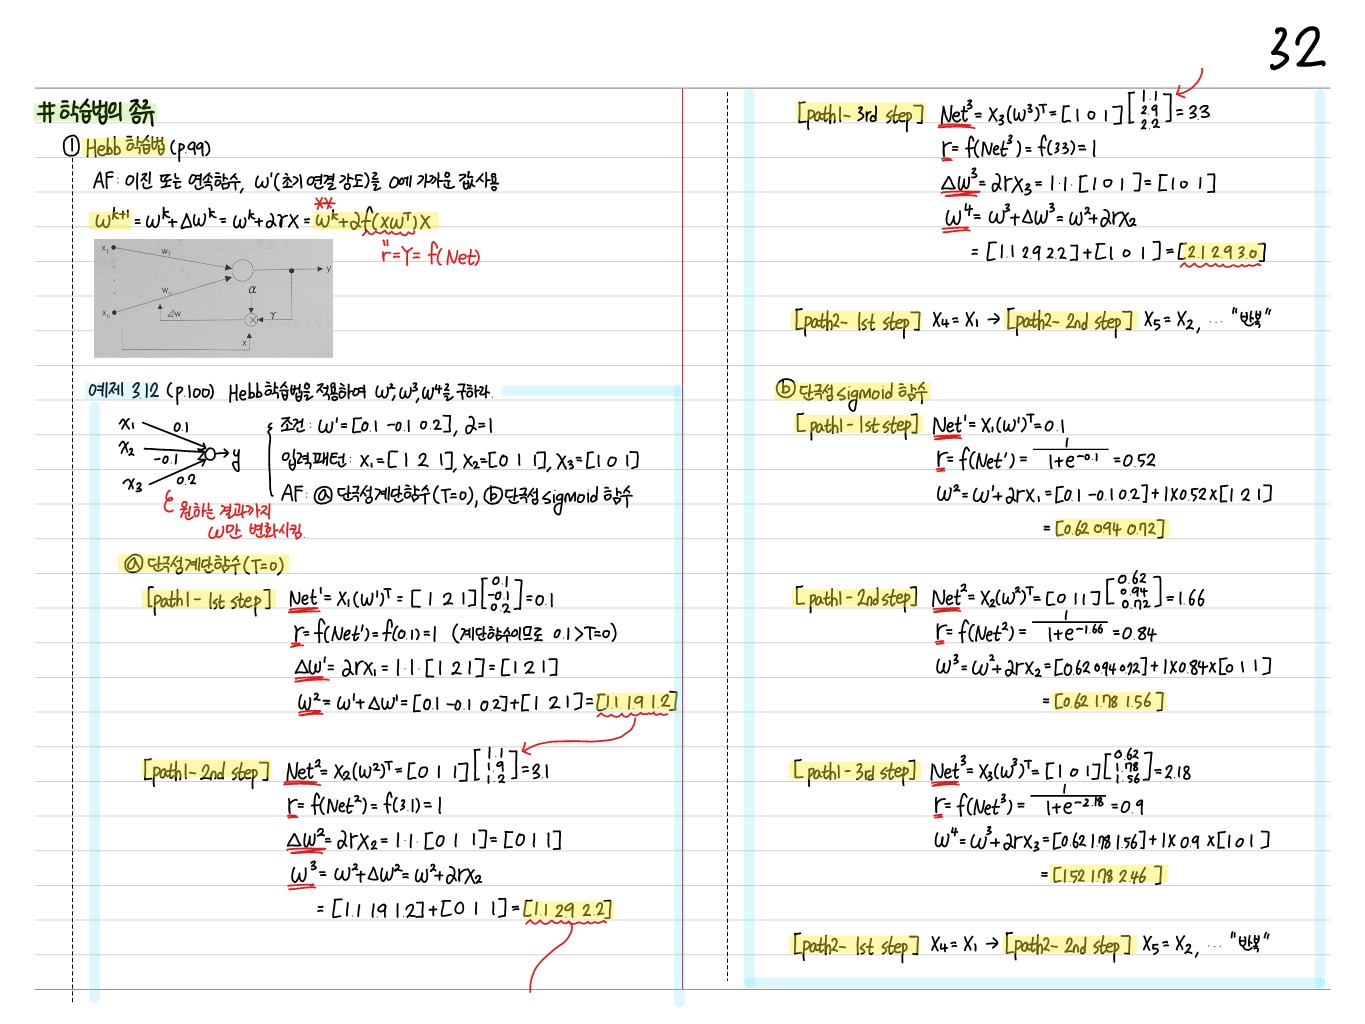 32
# 학습법의 종류
① Hebb 학습법 (p.99)
AF: 이진 또는 연속함수, w¹(초기 연결 강도)를 0에 가까운 값 사용
**
wᵏ⁺¹ = wᵏ+Δwᵏ = wᵏ+αrX = wᵏ+αf(XWᵀ)X
" r=Y= f(Net)
x₁ w₁ y
α
xₙ wₙ Δw × r
x
예제 3.12 (p.100) Hebb학습법을 적용하여 w², w³, w⁴를 구하라.
x₁ 0.1
x₂ -0.1 → y
x₃ 0.2
조건: w¹=[0.1 -0.1 0.2], α=1
입력패턴: X₁=[1 2 1], X₂=[0 1 1], X₃=[1 0 1]
AF: ⓐ 단극성계단함수(T=0), ⓑ단극성 sigmoid 함수
원하는 결과까지
w만 변화시킴.
ⓐ 단극성계단함수(T=0)
[path1-1st step] Net¹= X₁(w¹)ᵀ = [1 2 1][0.1 -0.1 0.2]=0.1
r= f(Net¹)= f(0.1)=1 (계단함수이므로 0.1>T=0)
Δw¹= αrX₁ = 1·1·[1 2 1]=[1 2 1]
w²= w¹+Δw¹=[0.1 -0.1 0.2]+[1 2 1]=[1.1 1.9 1.2]
[path1-2nd step] Net²= X₂(w²)ᵀ=[0 1 1][1.1 1.9 1.2]=3.1
r= f(Net²)= f(3.1)=1
Δw²= αrX₂ = 1·1·[0 1 1]=[0 1 1]
w³= w²+Δw²= w²+αrX₂
= [1.1 1.9 1.2]+[0 1 1]=[1.1 2.9 2.2]
[path1-3rd step] Net³= X₃(w³)ᵀ=[1 0 1][1.1 2.9 2.2]=3.3
r= f(Net³)= f(3.3)=1
Δw³= αrX₃ = 1·1·[1 0 1]=[1 0 1]
w⁴= w³+Δw³= w²+αrX₂
= [1.1 2.9 2.2]+[1 0 1]=[2.1 2.9 3.0]
[path2-1st step] X₄=X₁ → [path2-2nd step] X₅=X₂, ... "반복"
ⓑ 단극성 sigmoid 함수
[path1-1st step] Net¹= X₁(w¹)ᵀ=0.1
r= f(Net¹)= 1/(1+e⁻⁰·¹) =0.52
w²= w¹+αrX₁=[0.1 -0.1 0.2]+1×0.52×[1 2 1]
= [0.62 0.94 0.72]
[path1-2nd step] Net²= X₂(w²)ᵀ=[0 1 1][0.62 0.94 0.72]=1.66
r= f(Net²)= 1/(1+e⁻¹·⁶⁶) =0.84
w³= w²+αrX₂=[0.62 0.94 0.72]+1×0.84×[0 1 1]
= [0.62 1.78 1.56]
[path1-3rd step] Net³= X₃(w³)ᵀ=[1 0 1][0.62 1.78 1.56]=2.18
r= f(Net³)= 1/(1+e⁻²·¹⁸) =0.9
w⁴= w³+αrX₃=[0.62 1.78 1.56]+1×0.9×[1 0 1]
= [1.52 1.78 2.46]
[path2-1st step] X₄=X₁ → [path2-2nd step] X₅=X₂, ... "반복"